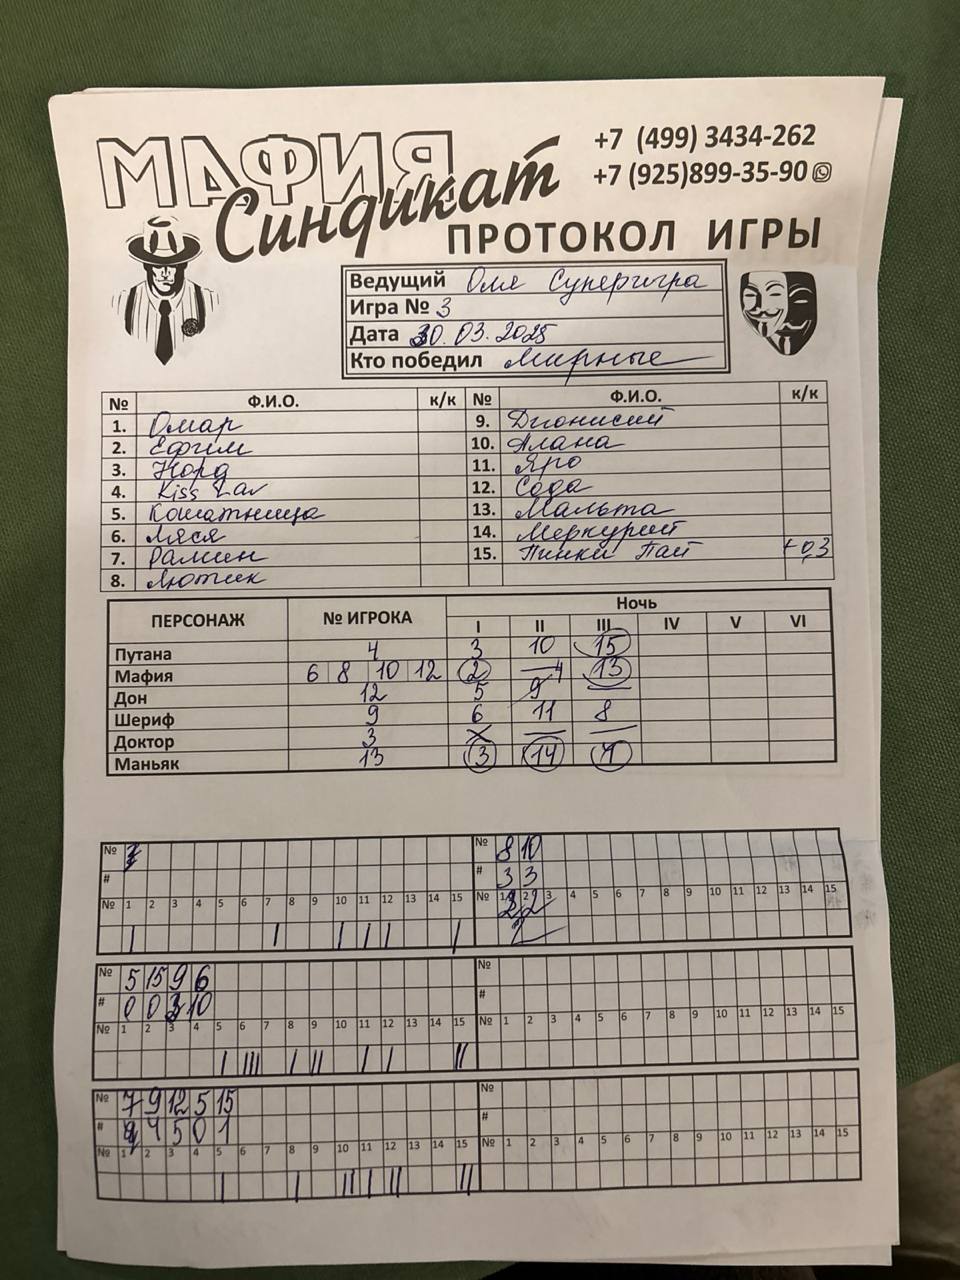 МАФИЯ
Синдикат
+7 (499) 3434-262
+7 (925)899-35-90
ПРОТОКОЛ ИГРЫ
Ведущий Оля Суперигра
Игра № 3
Дата 30.03.2025
Кто победил Мирные
№ Ф.И.О. к/к № Ф.И.О. к/к
1. Омар 9. Дионисий
2. Ефим 10. Алана
3. Норд 11. Яро
4. Kiss Lav 12. Сода
5. Кошатница 13. Мальта
6. Ляся 14. Меркурий
7. Рамин 15. Пинки Пай +0,3
8. Лютик
ПЕРСОНАЖ № ИГРОКА Ночь
I II III IV V VI
Путана 4 3 10 15
Мафия 6 8 10 12 2 — 13
Дон 12 5 9
Шериф 9 6 11 8
Доктор 3 X — —
Маньяк 13 3 14 4
№ № 8 10
# # 3 3
№ 1 2 3 4 5 6 7 8 9 10 11 12 13 14 15 № 3 4 5 6 7 8 9 10 11 12 13 14 15
№ 5 15 9 6 №
# 0 0 3 10 #
№ 1 2 3 4 5 6 7 8 9 10 11 12 13 14 15 № 1 2 3 4 5 6 7 8 9 10 11 12 13 14 15
№ 7 9 12 5 15 №
# 4 5 0 1 #
№ 1 2 3 4 5 6 7 8 9 10 11 12 13 14 15 № 1 2 3 4 5 6 7 8 9 10 11 12 13 14 15